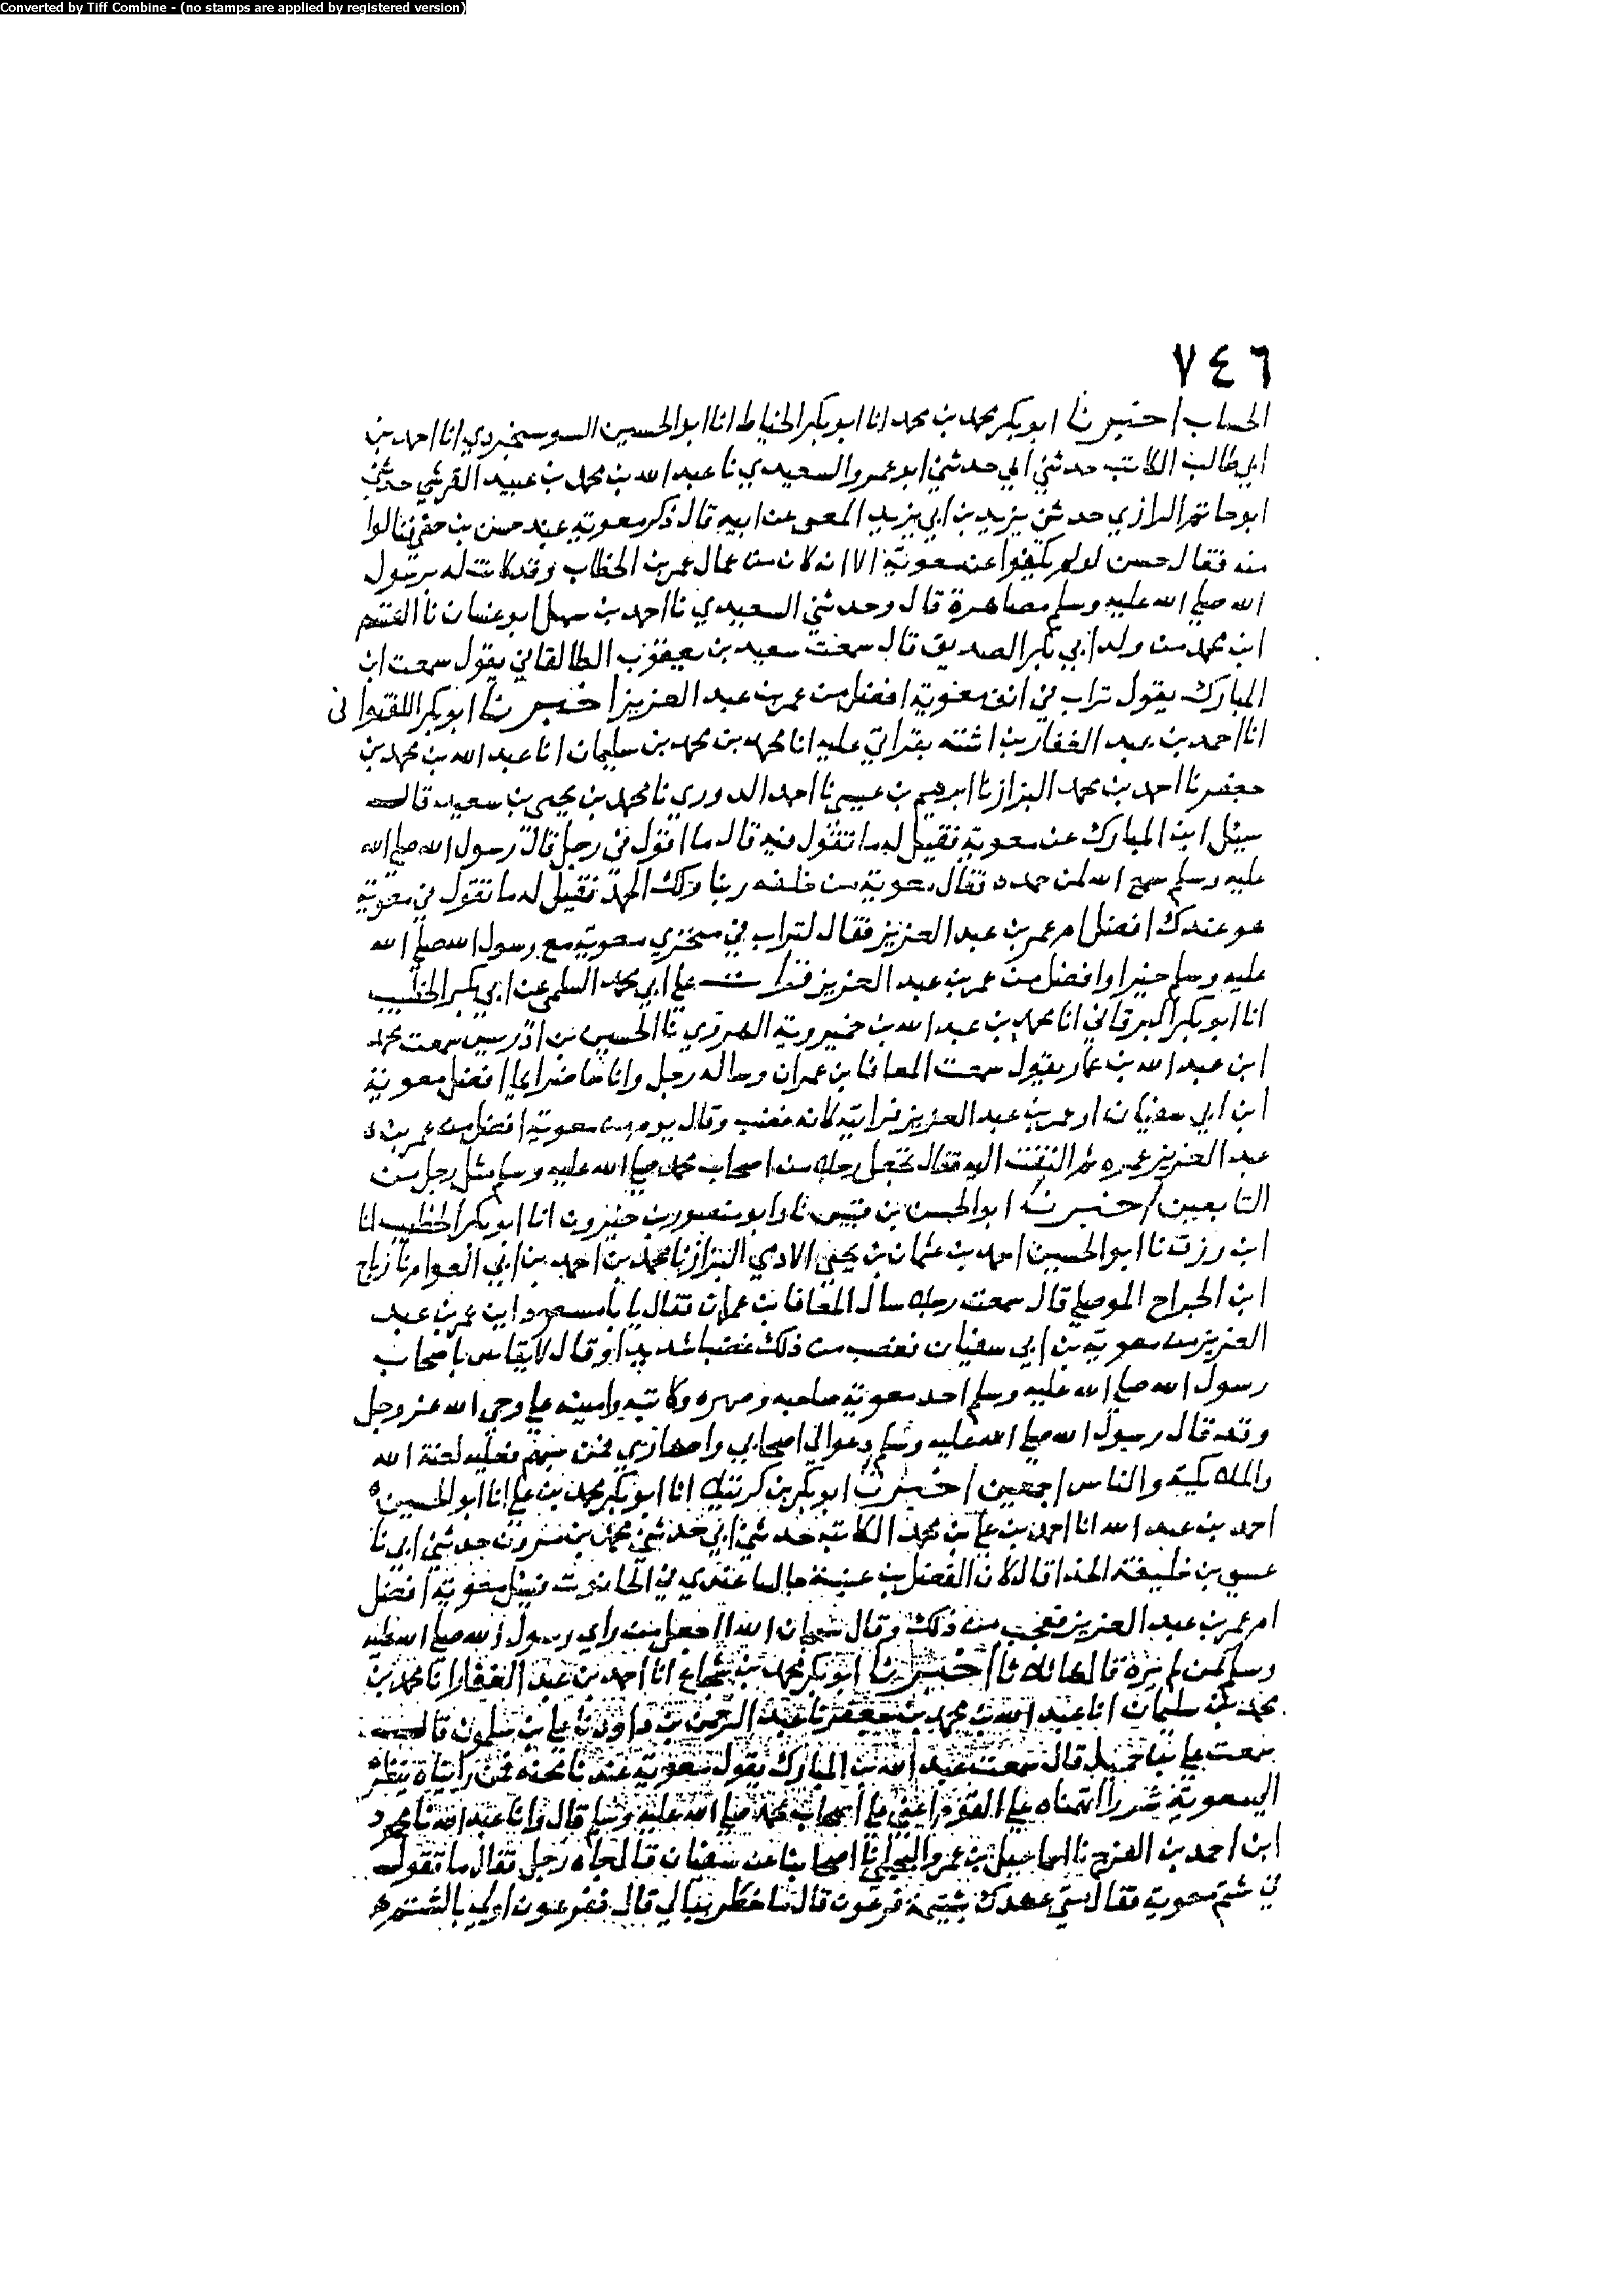 Converted by Tiff Combine - (no stamps are applied by registered version)
٧٤٦
الحساب اخبرنا ابو بكر محمد بن محمد انا ابو بكر الخياط انا ابو الحسين السوسنجردي انا احمد بن
ابي طالب الكاتب حدثني ابي حدثني ابو عمرو السعيدي نا عبد الله بن محمد بن عبيد القرشي حدثني
ابو حاتم الرازي حدثني يزيد بن ابي يزيد عن ابيه قال ذكر معوية عند حسن بن حي فنالوا
منه فقال حسن لو لم يكفوا عن معوية الا انه كان من عمال عمر بن الخطاب وقد كانت له برسول
الله صلى الله عليه وسلم مصاهرة قال وحدثني السعيدي نا احمد بن سهل ابو غسان نا القسم
ابن محمد من ولد ابي بكر الصديق قال سمعت سعيد بن يعقوب الطالقاني يقول سمعت ابن
المبارك يقول تراب في انف معوية افضل من عمر بن عبد العزيز اخبرنا ابو بكر اللفتواني
انا احمد بن عبد الغفار بن اشته بقراتي عليه انا محمد بن محمد بن سليمان انا عبد الله بن محمد بن
جعفر نا احمد بن محمد البزاز نا ابرهيم بن عيسى نا احمد الدوري نا محمد بن يحيى بن سعيد قال
سيئل ابن المبارك عن معوية فقيل له ما تقول فيه قال ما اقول في رجل قال رسول الله صلى الله
عليه وسلم سمع الله لمن حمده فقال معوية من خلفه ربنا ولك الحمد فقيل له ما تقول في معوية
هو عندك افضل ام عمر بن عبد العزيز فقال لتراب في منخري معوية مع رسول الله صلى الله
عليه وسلم خير او افضل من عمر بن عبد العزيز قرات على ابي محمد السلمي عن ابي بكر الخطيب
انا ابو بكر البرقاني انا محمد بن عبد الله بن خميروية الهروي نا الحسين بن ادريس سمعت محمد
ابن عبد الله بن عمار يقول سمعت المعافا بن عمران وساله رجل وانا حاضر ايما افضل معوية
ابن ابي سفيان او عمر بن عبد العزيز فرايته كانه غضب وقال يوم من معوية افضل من عمر بن
عبد العزيز عمره ثم التفت اليه فقال تجعل رجلا من اصحاب محمد صلى الله عليه وسلم مثل رجل من
التابعين اخبرنا ابو الحسن بن قبيس نا وابو منصور بن خيرون انا ابو بكر الخطيب انا
ابن رزق نا ابو الحسين احمد بن عثمان بن يحيى الادمي البزاز نا محمد بن احمد بن ابي العوام نا رباح
ابن الجراح الموصلي قال سمعت رجلا سال المعافا بن عمران فقال يا با مسعود اين عمر بن عبد
العزيز من معوية بن ابي سفيان فغضب من ذلك غضبا شديدا وقال لا يقاس باصحاب
رسول الله صلى الله عليه وسلم احد معوية صاحبه وصهره وكاتبه وامينه على وحي الله عز وجل
وقد قال رسول الله صلى الله عليه وسلم دعوا لي اصحابي واصهاري فمن سبهم فعليه لعنة الله
والملايكة والناس اجمعين اخبرنا ابو بكر بن كرتيلا انا ابو بكر محمد بن علي انا ابو الحسين
احمد بن عبد الله انا احمد بن علي بن محمد الكاتب حدثني ابي حدثني محمد بن مروان حدثني ابي نا
عسى بن خليفة الحذا قال كان الفضل بن عنبسة جالسا عندي في الحانوت فسئل معوية افضل
ام عمر بن عبد العزيز فعجب من ذلك وقال سبحان الله ااجعل من راي رسول الله صلى الله عليه
وسلم كمن لم يره قالها ثلاثا اخبرنا ابو بكر محمد بن شجاع انا احمد بن عبد الغفار انا محمد بن
محمد بن سليمان انا عبد الله بن محمد بن جعفر نا عبد الرحمن بن داود نا علي بن قال
سمعت علي بن جميل قال سمعت عبد الله بن المبارك يقول معوية عندنا محنه فمن رايناه ينظر
الى معوية شزرا اتهمناه على القوم اعني على اصحاب محمد صلى الله عليه وسلم قال وانا عبد الله نا محمود
ابن احمد بن الفرج نا اسماعيل بن عمرو البجلي نا اصحابنا عن سفيان قال جاه رجل فقال ما تقول
في شتم معوية فقال متى عهدك بشتيمة فرعون قال ما خطر ببالي قال ففرعون اولى بالشتم